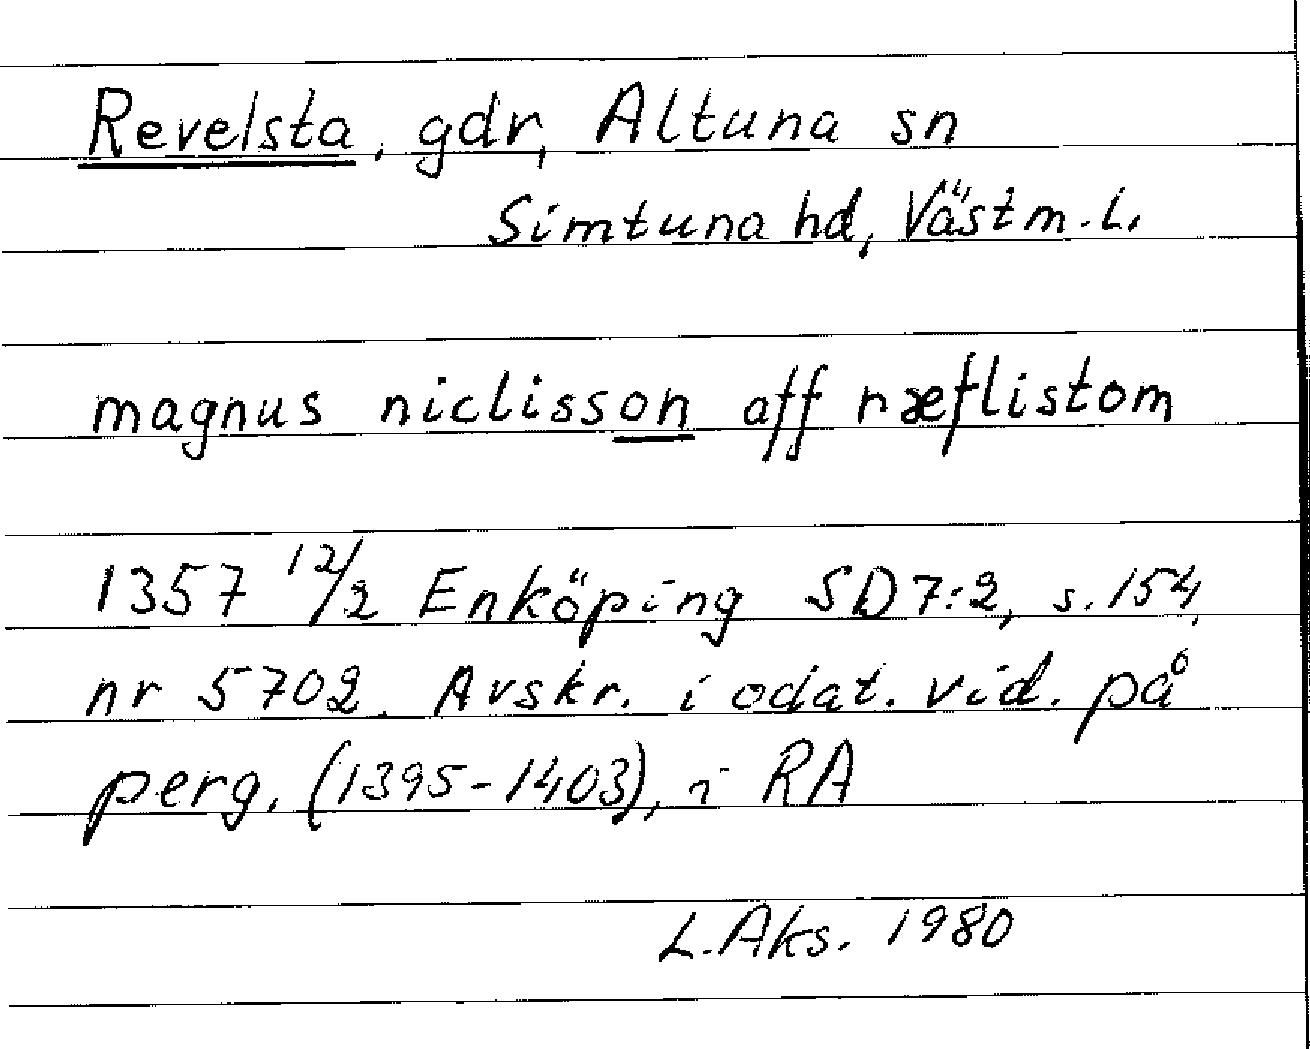 Revelsta, gdr, Altuna sn
Simtuna hd, Västm. L.
magnus niclisson aff ræflistom
1357 12/2 Enköping SD 7:2, s. 154,
nr 5702. Avskr. i odat. vid. på
perg. (1395-1403), i RA
L. Aks. 1980